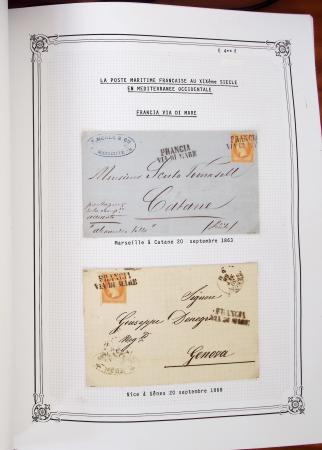 E 4== F
LA POSTE MARITIME FRANCAISE AU XIXème SIECLE
EN MEDITERRANEE OCCIDENTALE
FRANCIA VIA DI MARE
MARSEILLE
FRANCIA
VIA DI MARE
FRANCIA
VIA DI MARE
Monsieur
Catane
Marseille à Catane 20 septembre 1863
FRANCIA
VIA DI MARE
FRANCIA
VIA DI MARE
Signore
Giuseppe
Genova
Nice à Gênes 20 septembre 1868